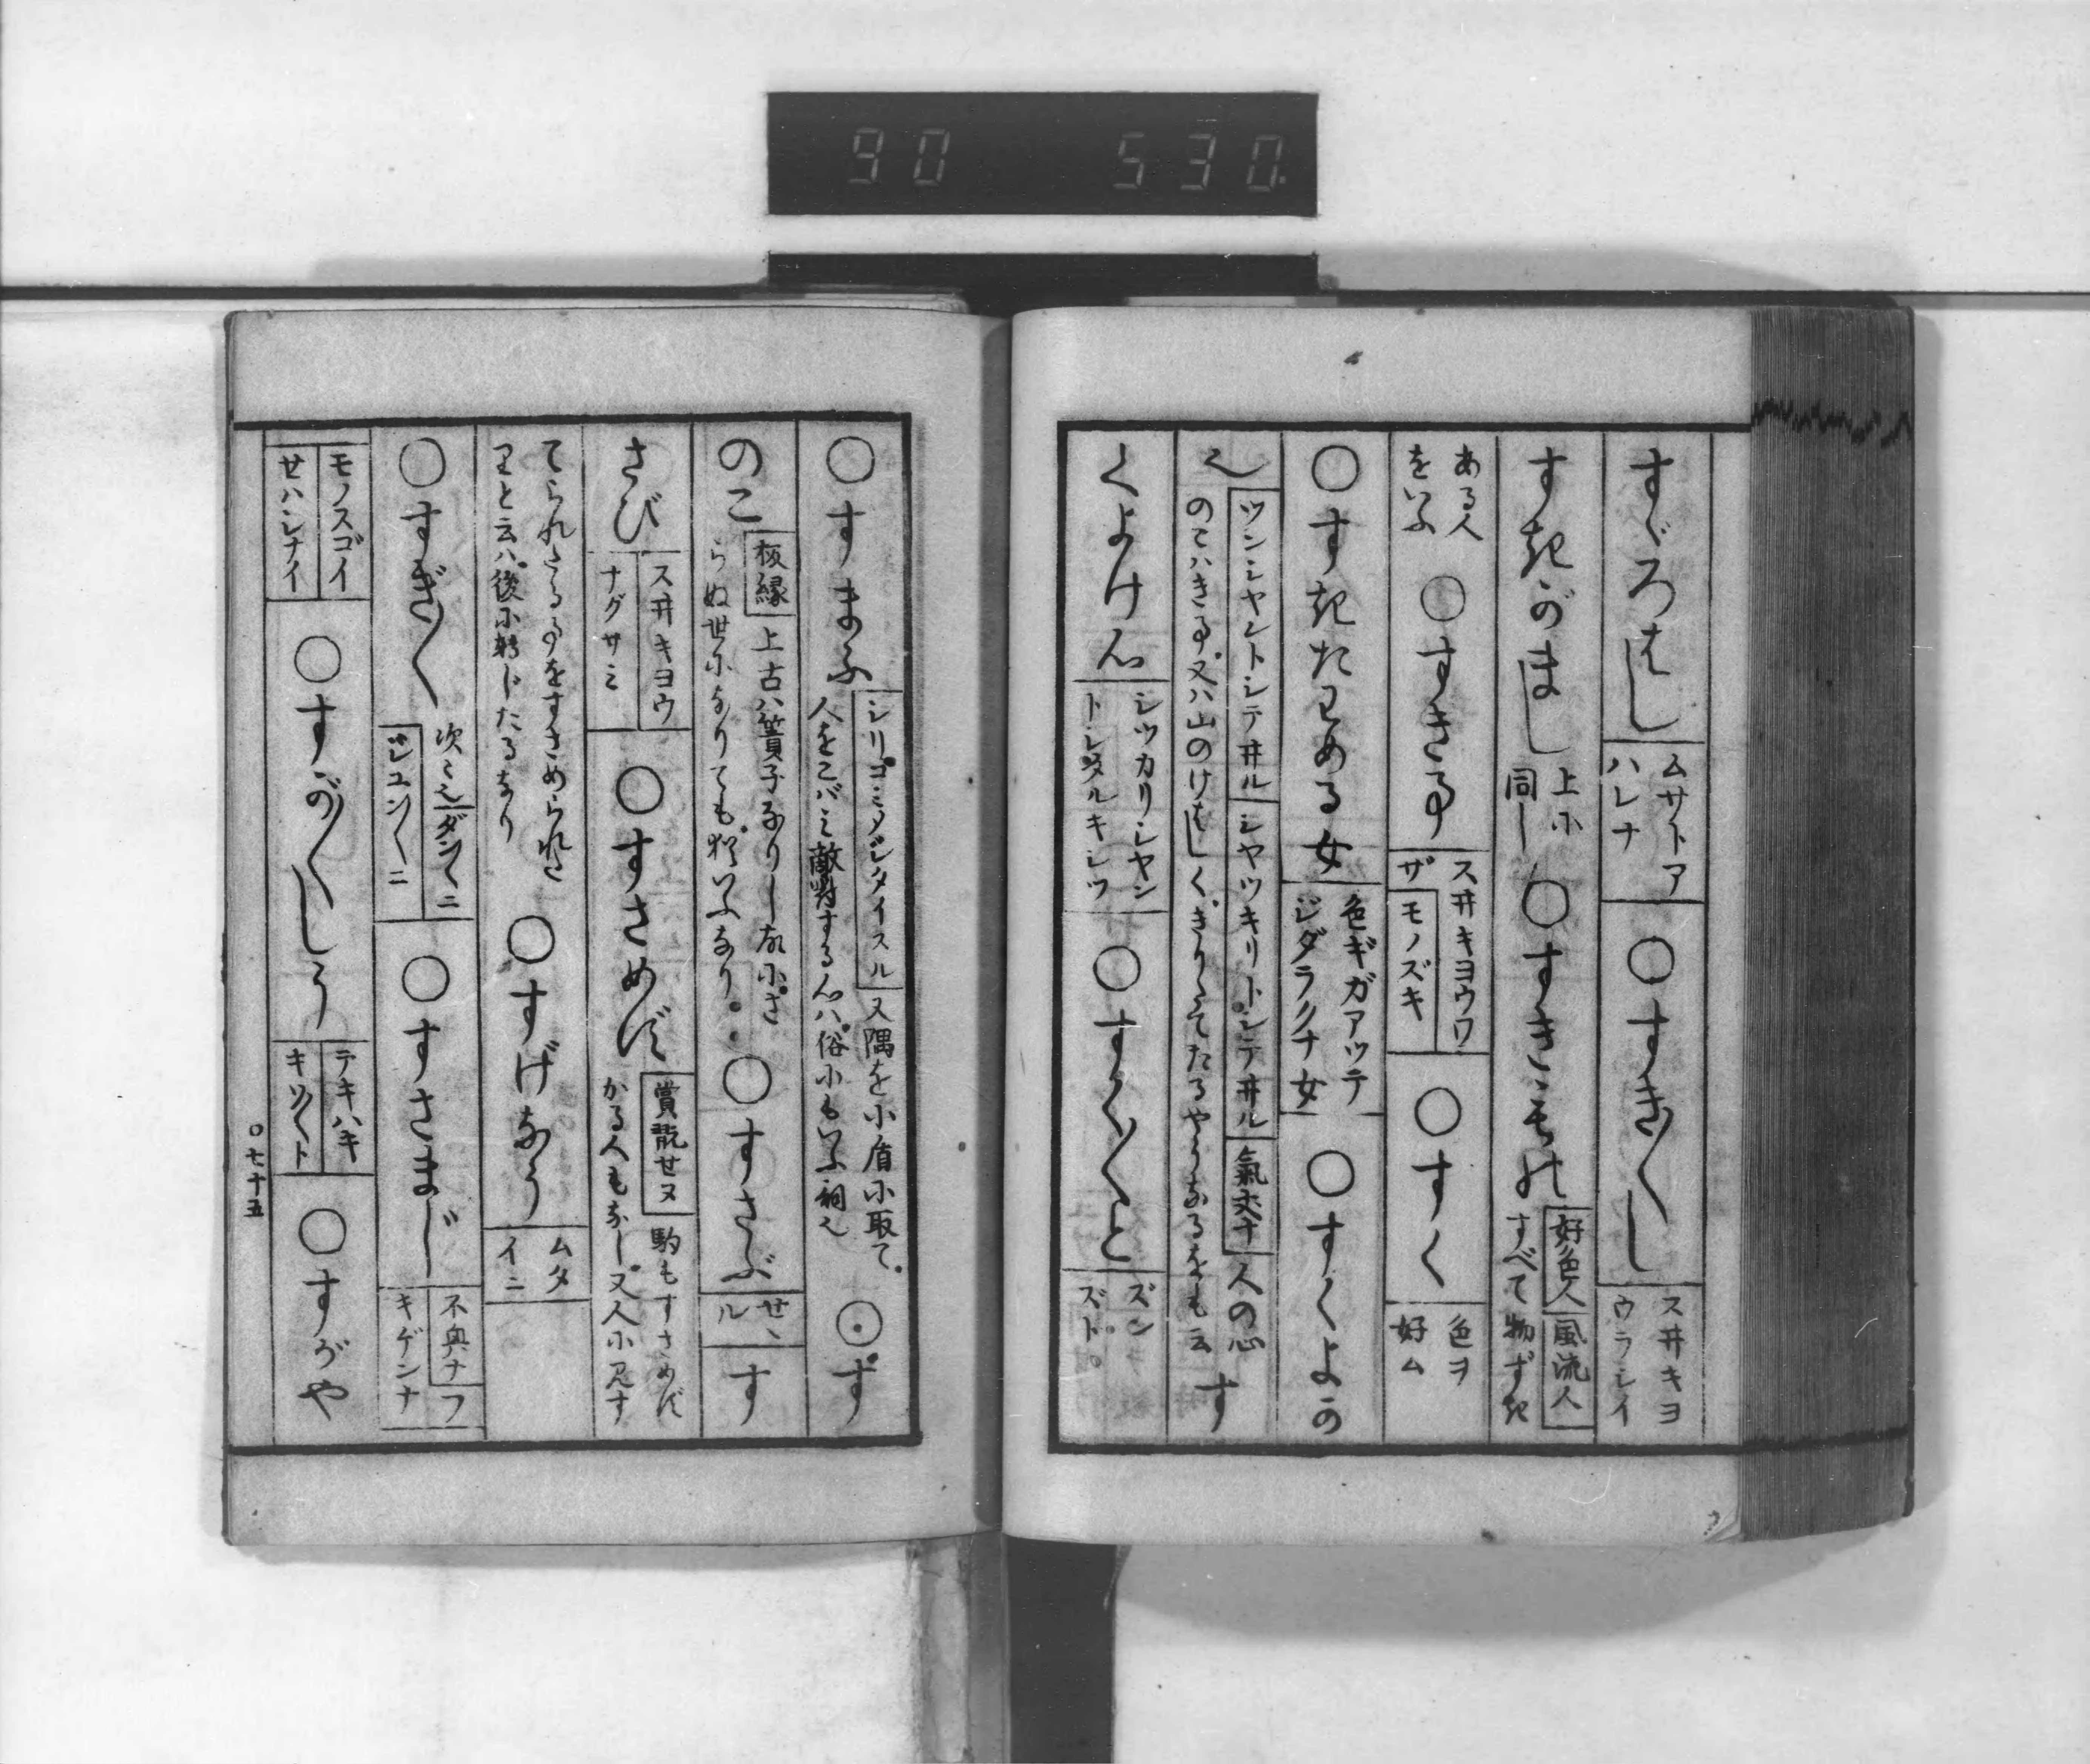 90 530.
すゞろはし ムサトア
ハレナ ○すき〴〵し スヰキヨ
ウラシイ
すきがまし 上に
同し ○すきもの 好色人 風流人
すべて物ずき
ある人
をいふ ○すき事 スヰキヨウワ
ザ モノズキ ○すく 色ヲ
好ム
○すきたわめる女 色ギガアツテ
ジダラクナ女 ○すくよか
也 ツンシヤントシテ井ル シヤツキリトシテ井ル 氣丈ナ 人の心
のこはき事又ハ山のけはしくきりたてたるやうなるをも云 す
くよけ心 シツカリシヤン
トシタルキシツ ○すく〳〵と ズン
ズト
○すまふ シリゴミヲシタイスル 又隅を小盾に取て
人をこバミ敵對する心ハ俗にもいふ詞也 ⊙ず
のこ 板縁 上古ハ簀子なりし故にさ
らぬ世になりても猶いふなり ○すさぶ せヽ
ル す
さび スヰキヨウ
ナグサミ ○すさめず 賞翫せヌ 駒もすさめず
かる人もなし又人に見す
てられたる事をすさめられた
りと云ハ後に轉じたるなり ○すげなう ムタ
イニ
○すぎ〳〵 次々也 ダン〳〵ニ
ジユン〳〵ニ ○すさまじ 不興ナ フ
キゲンナ
モノスゴイ
せハシナイ ○すが〳〵しう テキハキ
キリ〳〵ト ○すがや
○七十五